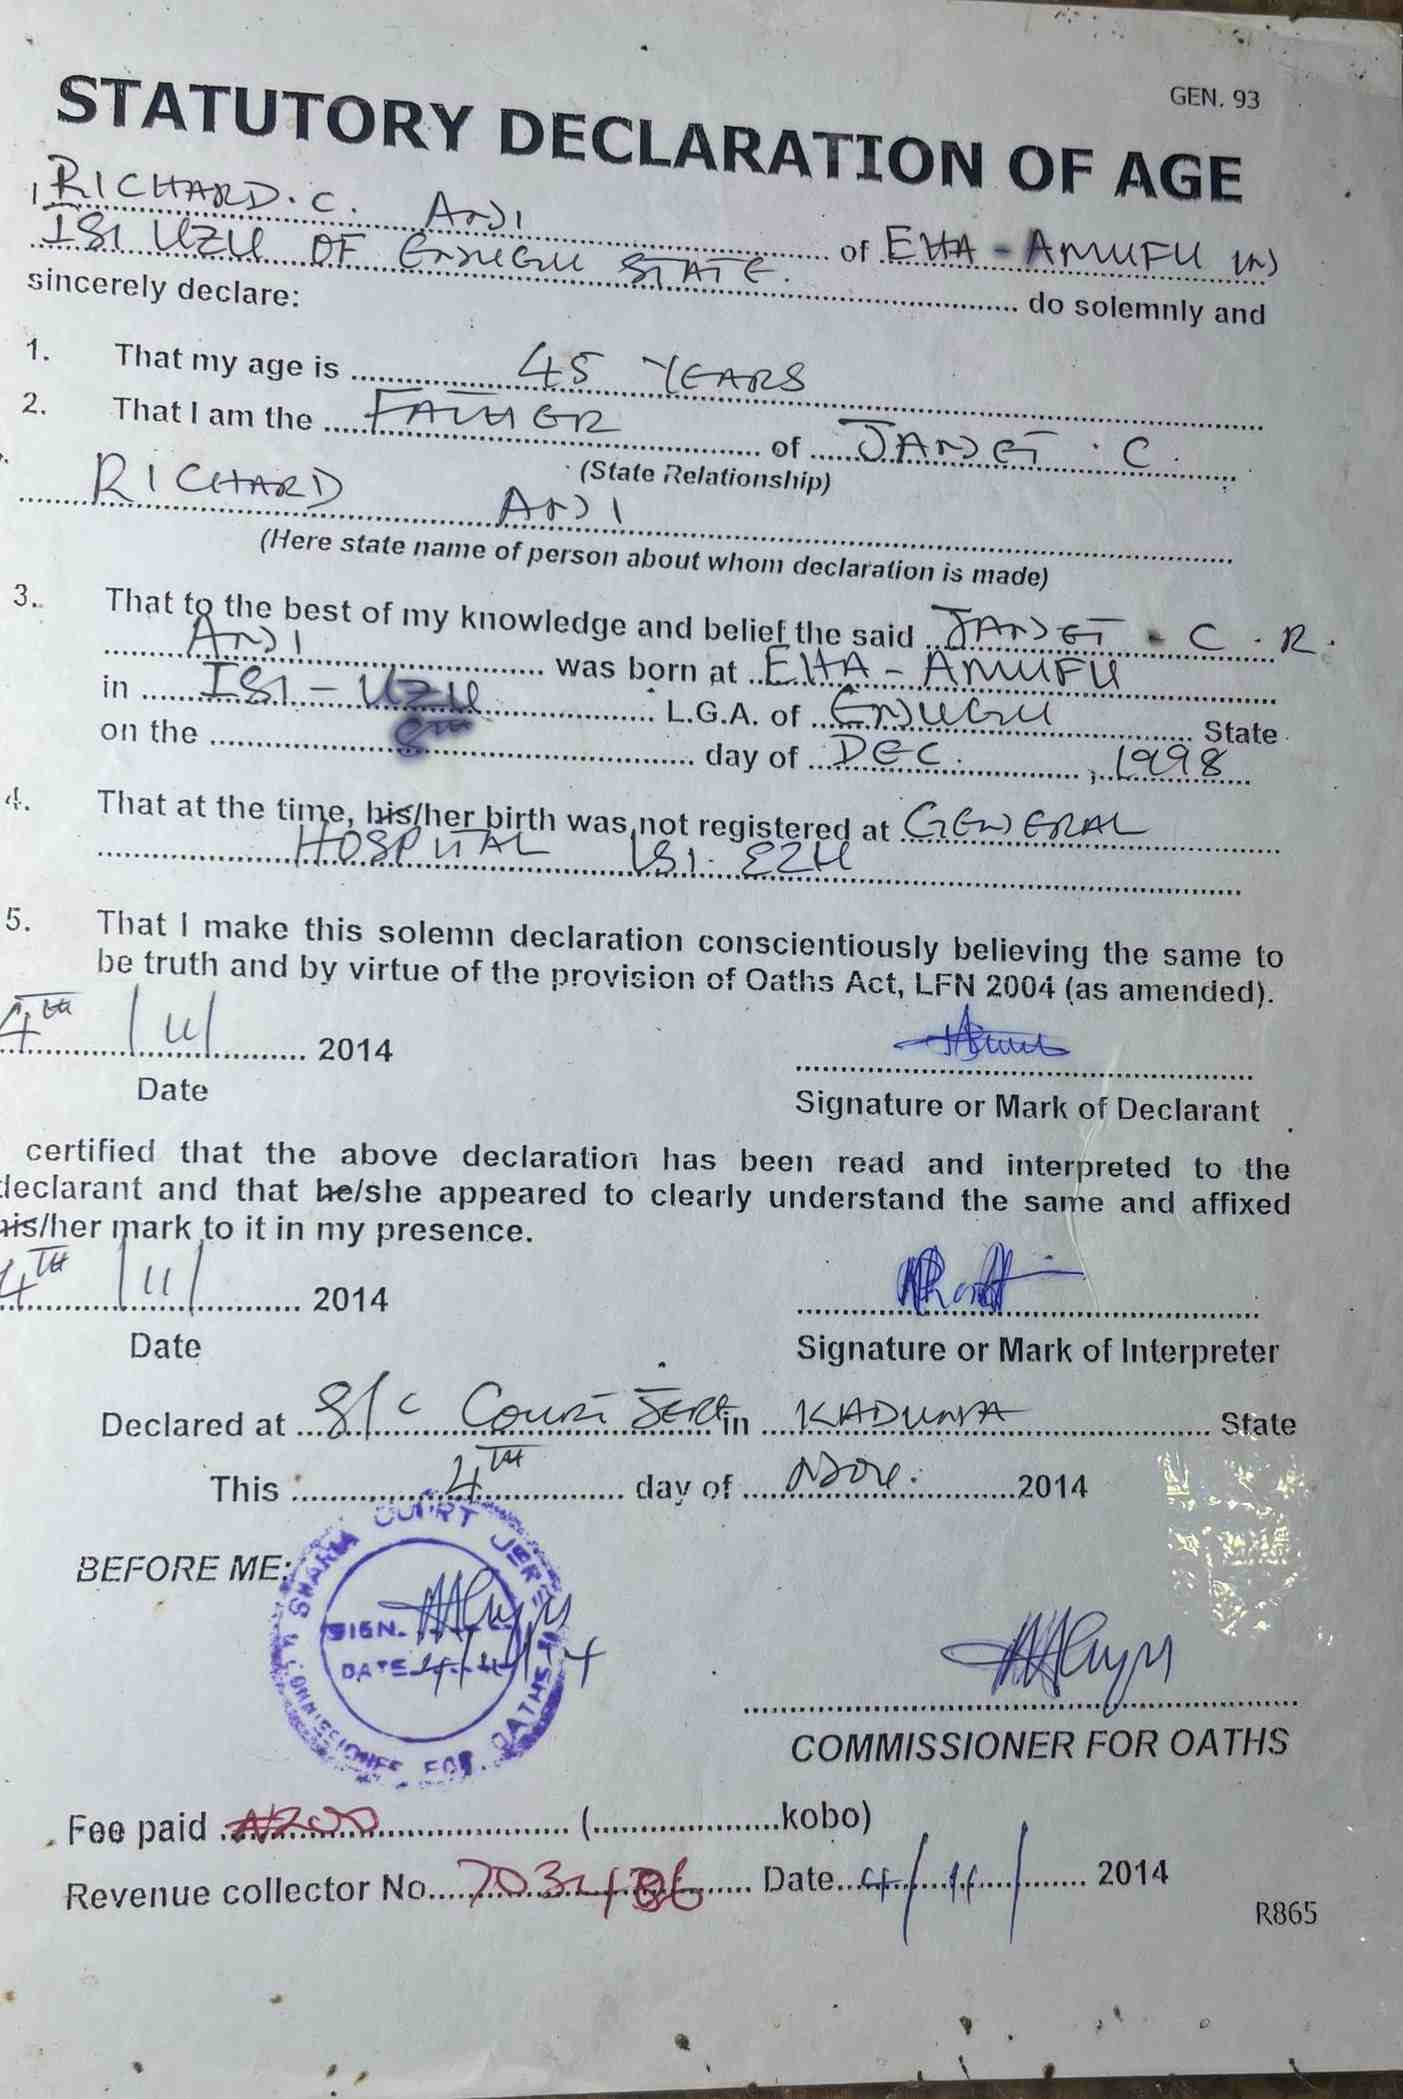 GEN. 93
STATUTORY DECLARATION OF AGE
I, RICHARD. C. ANI of EHA - AMUFU IN
ISI UZU OF ENUGU STATE. do solemnly and
sincerely declare:
1. That my age is 45 YEARS
2. That I am the FATHER of JANET. C.
(State Relationship)
RICHARD ANI
(Here state name of person about whom declaration is made)
3. That to the best of my knowledge and belief the said JANET. C. R.
ANI was born at EHA - AMUFU
in ISI - UZU L.G.A. of ENUGU State
on the 8TH day of DEC. , 1998
4. That at the time, his/her birth was not registered at GENERAL
HOSPITAL ISI. EZU
5. That I make this solemn declaration conscientiously believing the same to
be truth and by virtue of the provision of Oaths Act, LFN 2004 (as amended).
4TH /11/ 2014
Date
Signature or Mark of Declarant
certified that the above declaration has been read and interpreted to the
declarant and that he/she appeared to clearly understand the same and affixed
his/her mark to it in my presence.
4TH /11/ 2014
Date
Signature or Mark of Interpreter
Declared at S/C COURT JERE in KADUNA State
This 4TH day of NOV. 2014
BEFORE ME:
SHARIA COURT JERE
SIGN.
DATE 4/11/14
COMMISSIONER FOR OATHS
COMMISSIONER FOR OATHS
Fee paid ₦200 (...................kobo)
Revenue collector No. Date 4/11/ 2014
R865